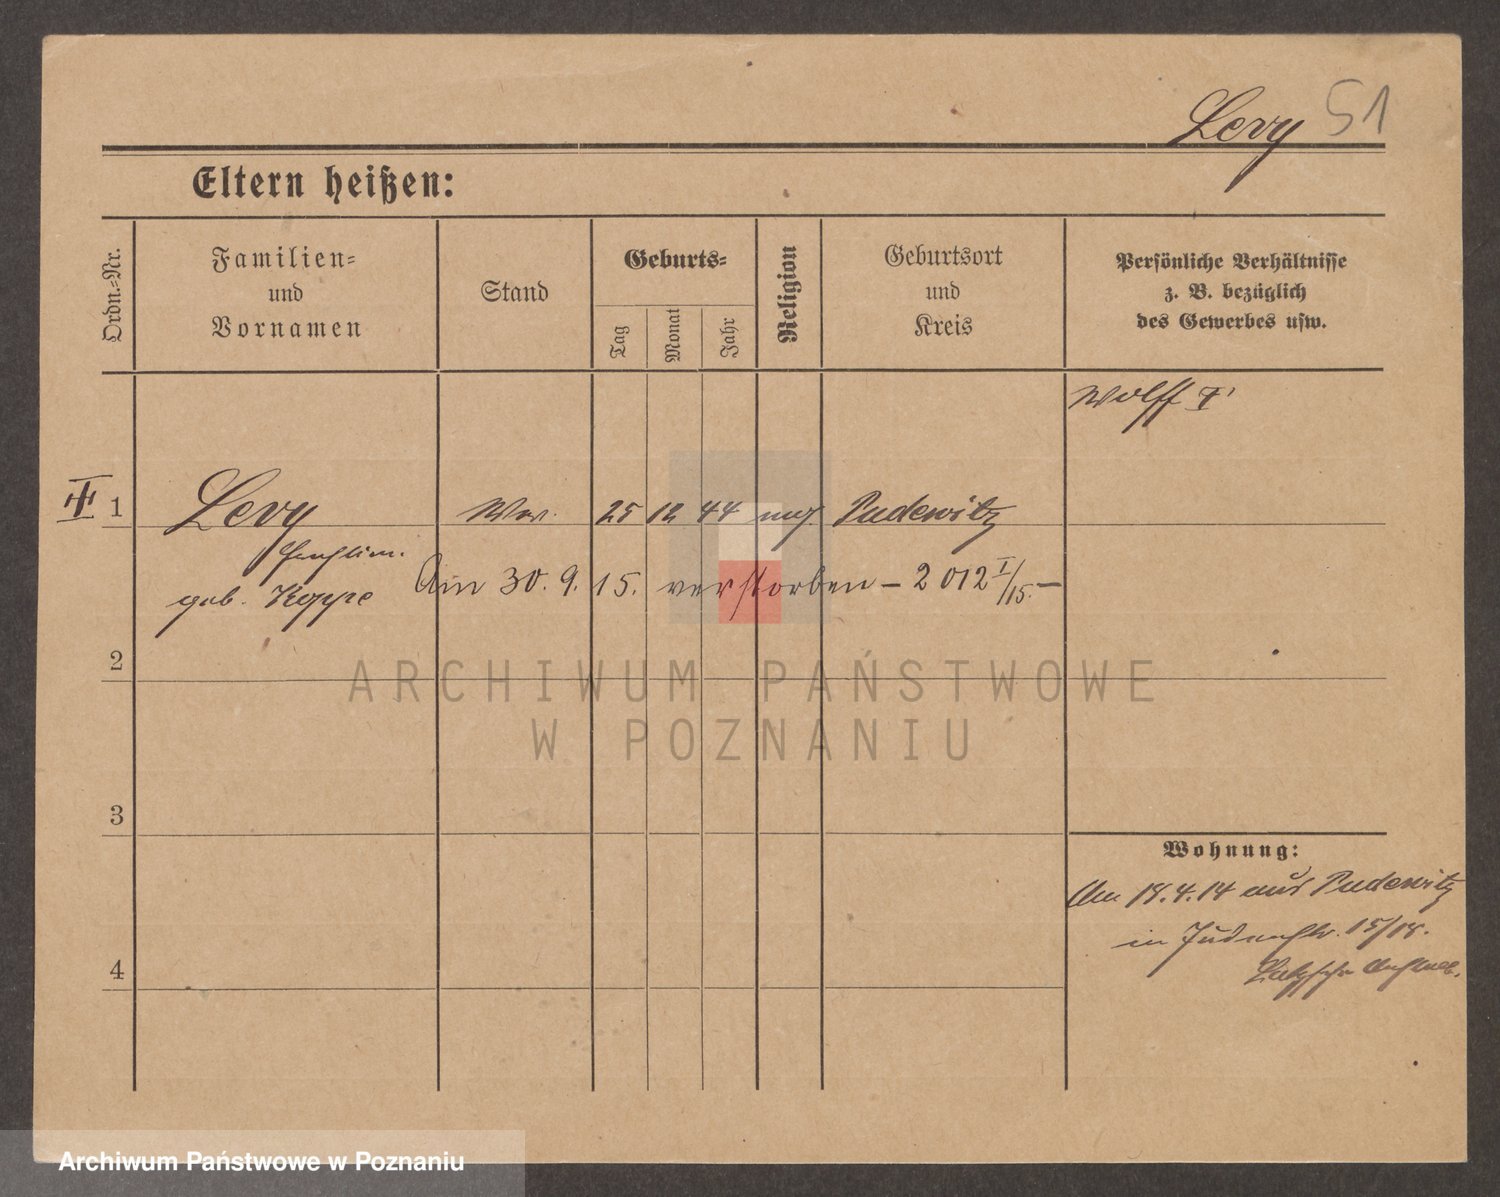 Levy 51
Eltern heißen:
Ordn.-Nr.
Familien-
und
Vornamen
Stand
Geburts-
Tag
Monat
Jahr
Religion
Geburtsort
und
Kreis
Persönliche Verhältnisse
z. B. bezüglich
des Gewerbes usw.
Wolff †
1 Levy Ww. 25 12 44 mos Pudewitz
geb. Koppe
Am 30. 9. 15. verstorben – 2012 I/15. –
2
ARCHIWUM PAŃSTWOWE
W POZNANIU
3
Wohnung:
Am 18.4.14 aus Pudewitz
in Judenstr. 15/18.
4
Archiwum Państwowe w Poznaniu